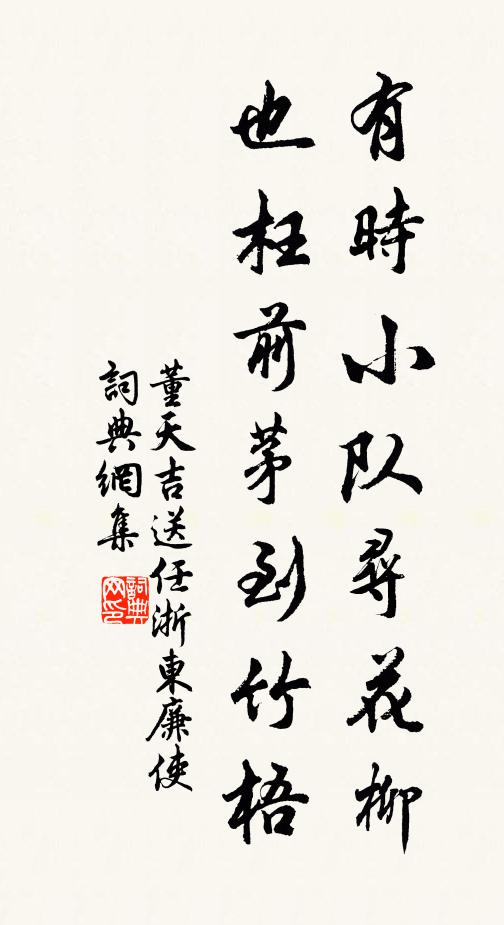 有時小队尋花柳
也枉前茅到竹梧
董天吉送任浙東廉使
詞典網集
詞典
网印